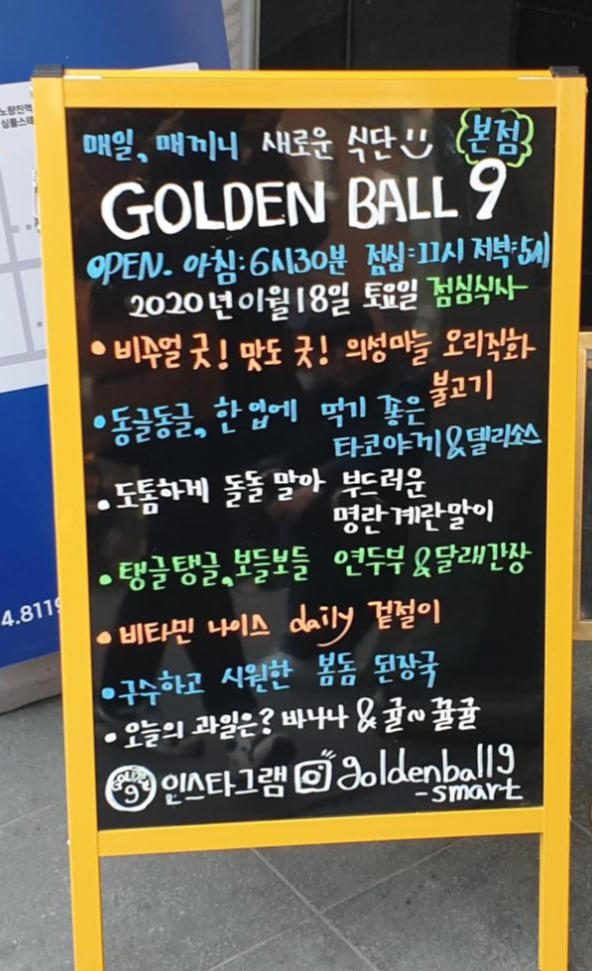 노량진역
심플스테
매일, 매끼니 새로운 식단 본점
GOLDEN BALL 9
OPEN. 아침:6시30분 점심:11시 저녁:5시
2020년 01월 18일 토요일 점심식사
• 비주얼 굿! 맛도 굿! 의성마늘 오리직화
불고기
• 동글동글, 한입에 먹기 좋은
타코야끼&델리소스
• 도톰하게 돌돌 말아 부드러운
명란계란말이
• 탱글탱글, 보들보들 연두부&달래간장
• 비타민 나이스 daily 겉절이
• 구수하고 시원한 봄동 된장국
• 오늘의 과일은? 바나나 & 귤~ 뀰귤
9 인스타그램 goldenball9
-smart
4.8119